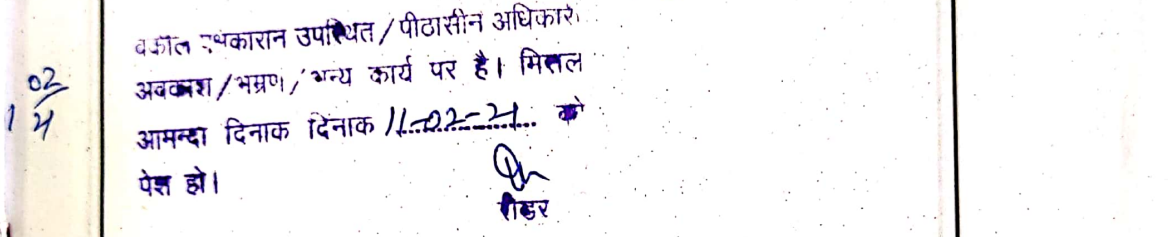 वकील पक्षकारान उपस्थित / पीठासीन अधिकारी
अवकाश / भम्रण / अन्य कार्य पर है। मिसल
आमन्दा दिनाक दिनाक 11-02-21 को
पेश हो।
रीडर